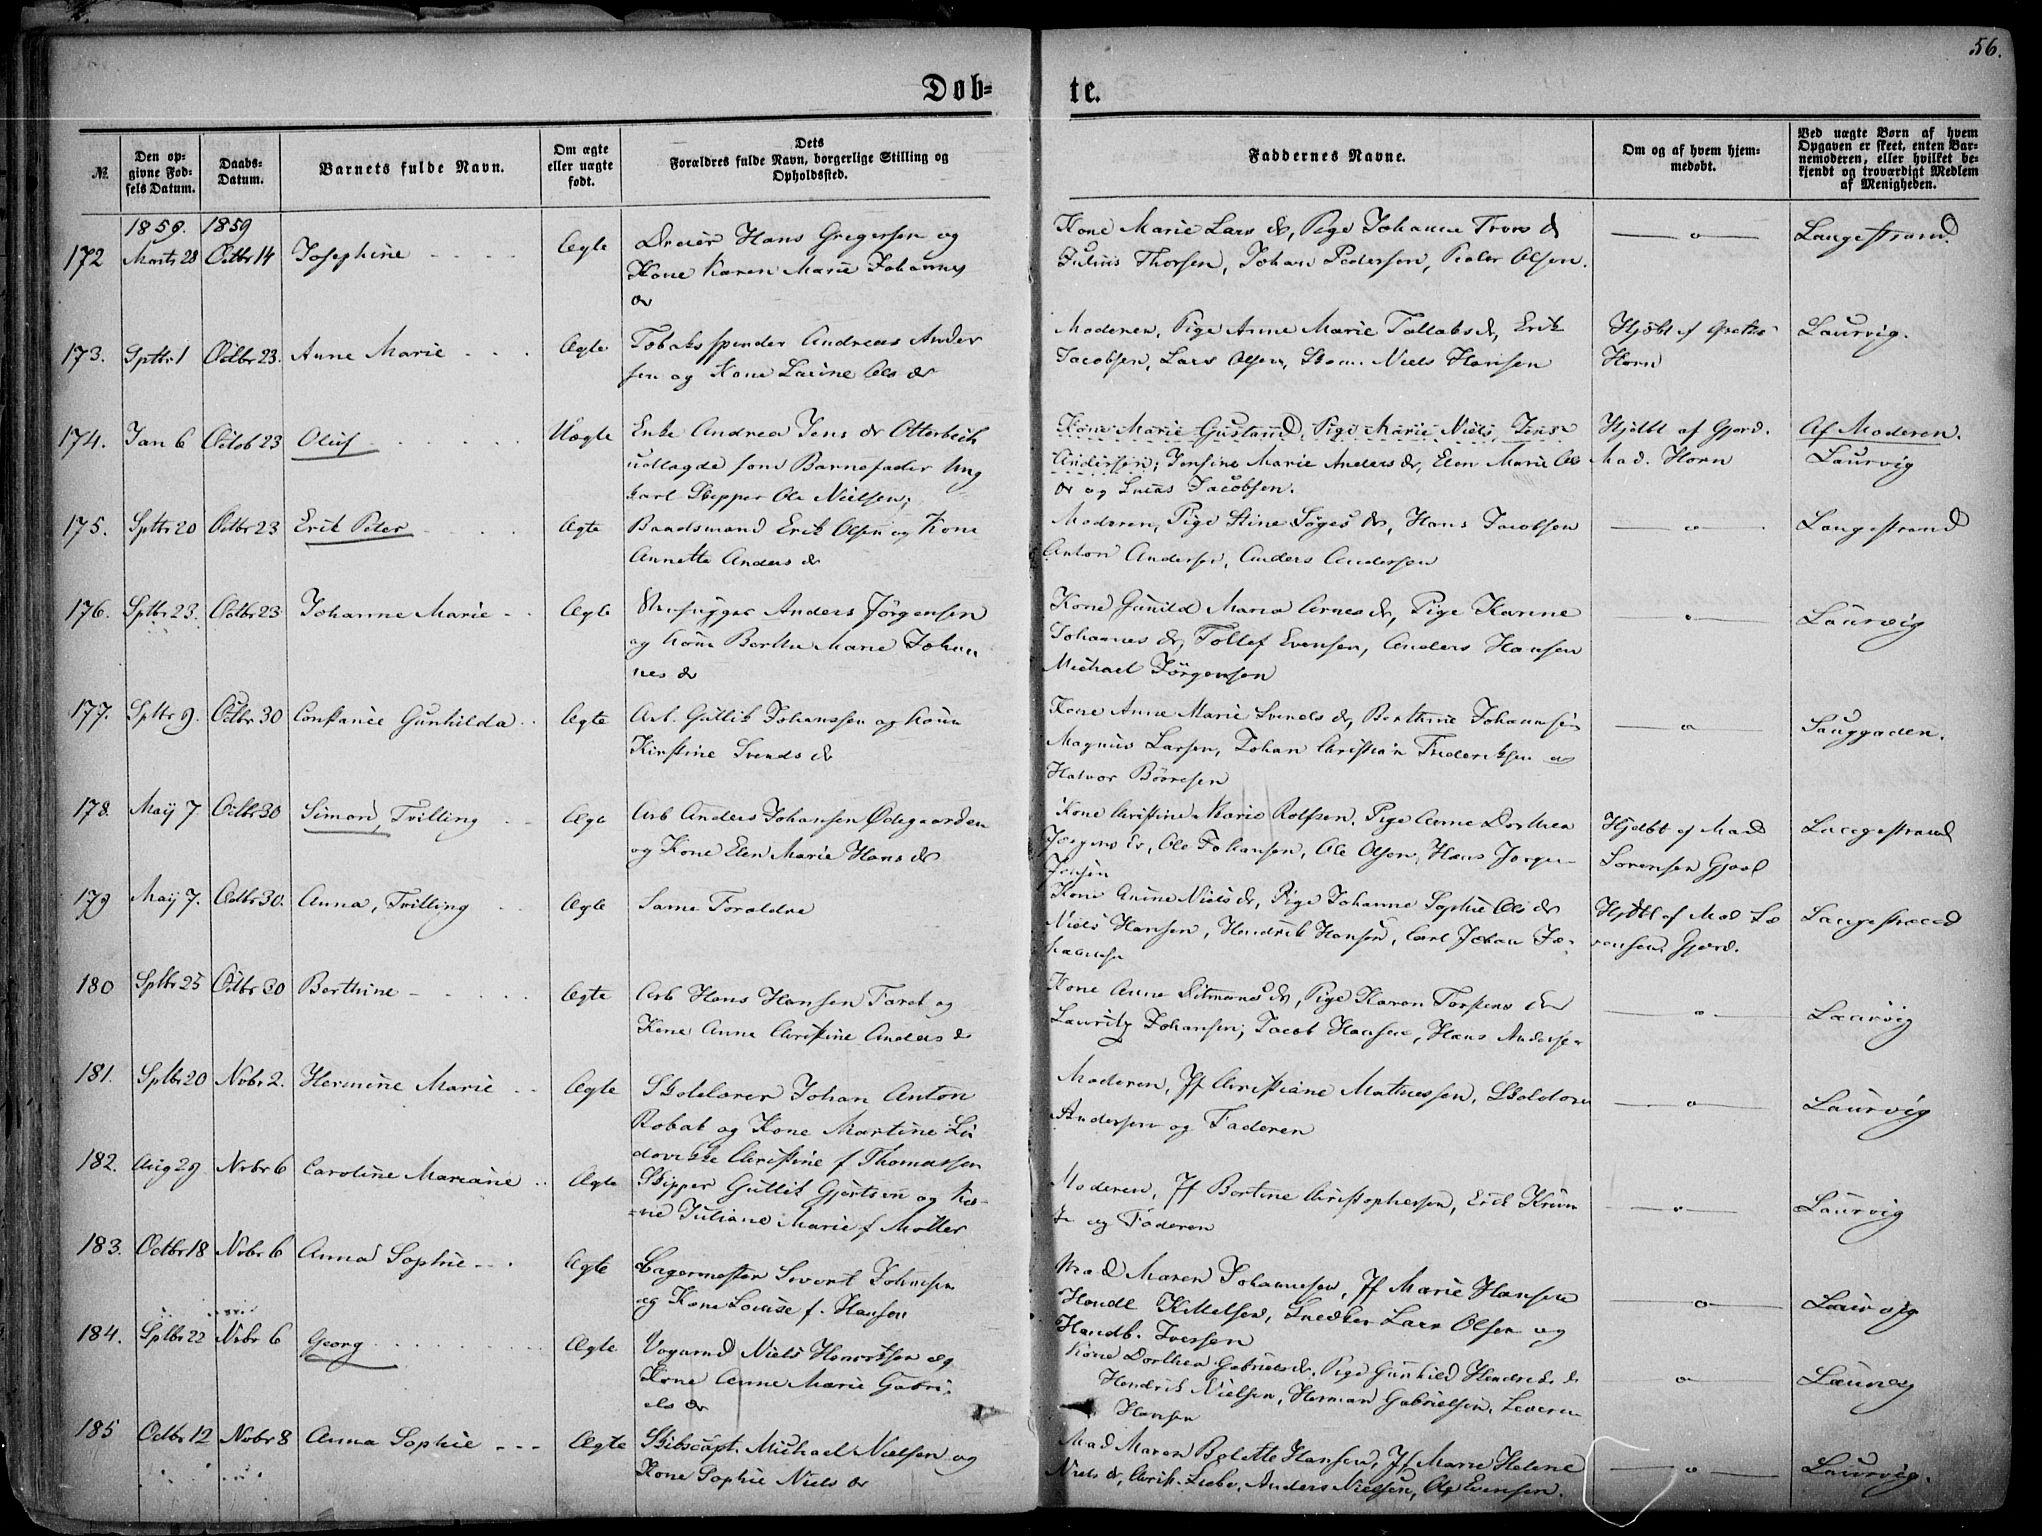 56.
Døb=
te.
№
Den op-
givne Fød-
sels Datum.
Daabs-
Datum.
Barnets fulde Navn.
Om ægte
eller uægte
født.
Dets
Forældres fulde Navn, borgerlige Stilling og
Opholdssted.
Faddernes Navne.
Om og af hvem hjem-
medøbt.
Ved uægte Børn af hvem
Opgaven er skeet, enten Bar-
nemoderen, eller hvilket be-
kjendt og troværdigt Medlem
af Menigheden.
1859. 1859
172 Marts 28 Octbr 14 Josephine Ægte Dreier Hans Gregersen og
Kone Karen Marie Johannes
dr
Kone Marie Lars dr, Pige Johanne Thors d
Julius Thorsen, Johan Pedersen, Peder Olsen. — o — Langestrand.
173. Sptbr 1 Octbr 23. Anne Marie Ægte Tobaksspinder Andreas Ander
sen og Kone Laurine Ols dr
Moderen, Pige Anne Marie Tollabs dr, Erik
Jacobsen, Lars Olsen, Niels Hansen
Hjdbt af Grethe
Horn
Laurvig.
174. Jan 6 Octob 23 Oluf Uægte Enke Andrea Jens dr Otterbech
udlagde som Barnefader Ung
karl Skipper Ole Nielsen;
Kone Marie Gustavd, Pige Marie Niels, Jens
Andersen; Jensine Marie Anders dr, Elen Marie Ols
dr og Lucas Jacobsen.
Hjdbt af Gjord.
Mad. Horn
Af Moderen.
Laurvig
175. Sptbr 20 Octbr 23 Erik Peter Ægte Baadsmand Erik Olsen og Kone
Annette Anders dr
Moderen, Pige Stine Søges dr, Hans Jacobsen
Anton Andersen, Anders Andersen
— o — Langestrand
176. Sptbr 23. Octbr 23 Johanne Marie Ægte Anders Jørgensen
og Kone Berthe Marie Johan
nes dr
Kone Gunild Maria Arnes dr, Pige Karine
Johannes dr, Tollef Evensen, Anders Hansen
Michael Jörgensen
— o — Laurvig
177. Sptbr 9. Octbr 30 Constance Gunhilda Ægte Arb. Gullik Johanssen og Kone
Kirstine Svends dr
Kone Anne Marie Svends dr, Berthine Johannsen
Magnus Larsen, Johan Christian Frederiksen og
Halvor Börresen
— o — Sauggaden.
178. May 7. Octbr 30 Simon, Tvilling Ægte Arb Anders Johansen Ødegaarden
og Kone Elen Marie Hans dr
Kone Christine Marie Rolfsen, Pige Anne Dorthea
Jørgens dr, Ole Johansen, Ole Olsen, Hans Jørgen
Jensen
Hjdbt af Mad
Sorensen Gjord
Langestrand
179 May 7. Octbr 30. Anna, Tvilling Ægte Same Forældre
Kone Anne Niels dr, Pige Johanne Sophie Ols dr
Niels Hansen, Hendrik Hansen, Carl Johan Jo-
hannsen
Hjdbt af Mad So
rensen Gjord.
Langestrand
180 Sptbr 25 Octbr 30 Berthine Ægte Arb Hans Hansen Faret og
Kone Anna Christine Anders d
Kone Anne Ditmans dr, Pige Karen Torstens dr
Lauritz Johansen; Jacob Hansen, Hans Andersen
— o — Laurvig
181. Sptbr 20 Nvbr 2. Hermine Marie Ægte Skolelærer Johan Anton
Robak og Kone Martine Lu
dovikke Christine f Thomassen
Moderen, Jf Christiane Mathiessen, Skolelærer
Andersen og Faderen
— o — Laurvig
182. Aug 29 Nvbr 6 Caroline Mariane Ægte Skipper Gullik Gjertsen og Ko-
ne Juliane Marie f Møller
Moderen, Jf Bertine Christophersen, Erik
og Faderen
— o — Laurvig
183. Octbr 18 Nvbr 6 Anna Sophie Ægte Bagermester Sivert Johnsen
og Kone Lovise f. Hansen
Mad Maren Johannesen, Jf Marie Hansen
Handl Kittelsen, Snedker Lars Olsen og
Handb. Iversen
— o — Laurvig
184. Sptbr 22 Nvbr 6 Georg Ægte Vognmd Niels Henriksen og
Kone Anne Marie Gabri-
els dr
Kone Dorthea Gabriels dr, Pige Gunhild Hendriks d
Hendrik Nielsen, Herman Gabrielsen,
Hansen
— o — Laurvig
185 Octbr 12 Nvbr 8 Anna Sophie Ægte Skibscapt. Michael Nielsen og
Kone Sophie Niels dr
Mad Maren Bolette Hansen, Jf Marie Helene
Niels dr, Christ. Anders Nielsen, Ole Evensen.
— o — Laurvig.